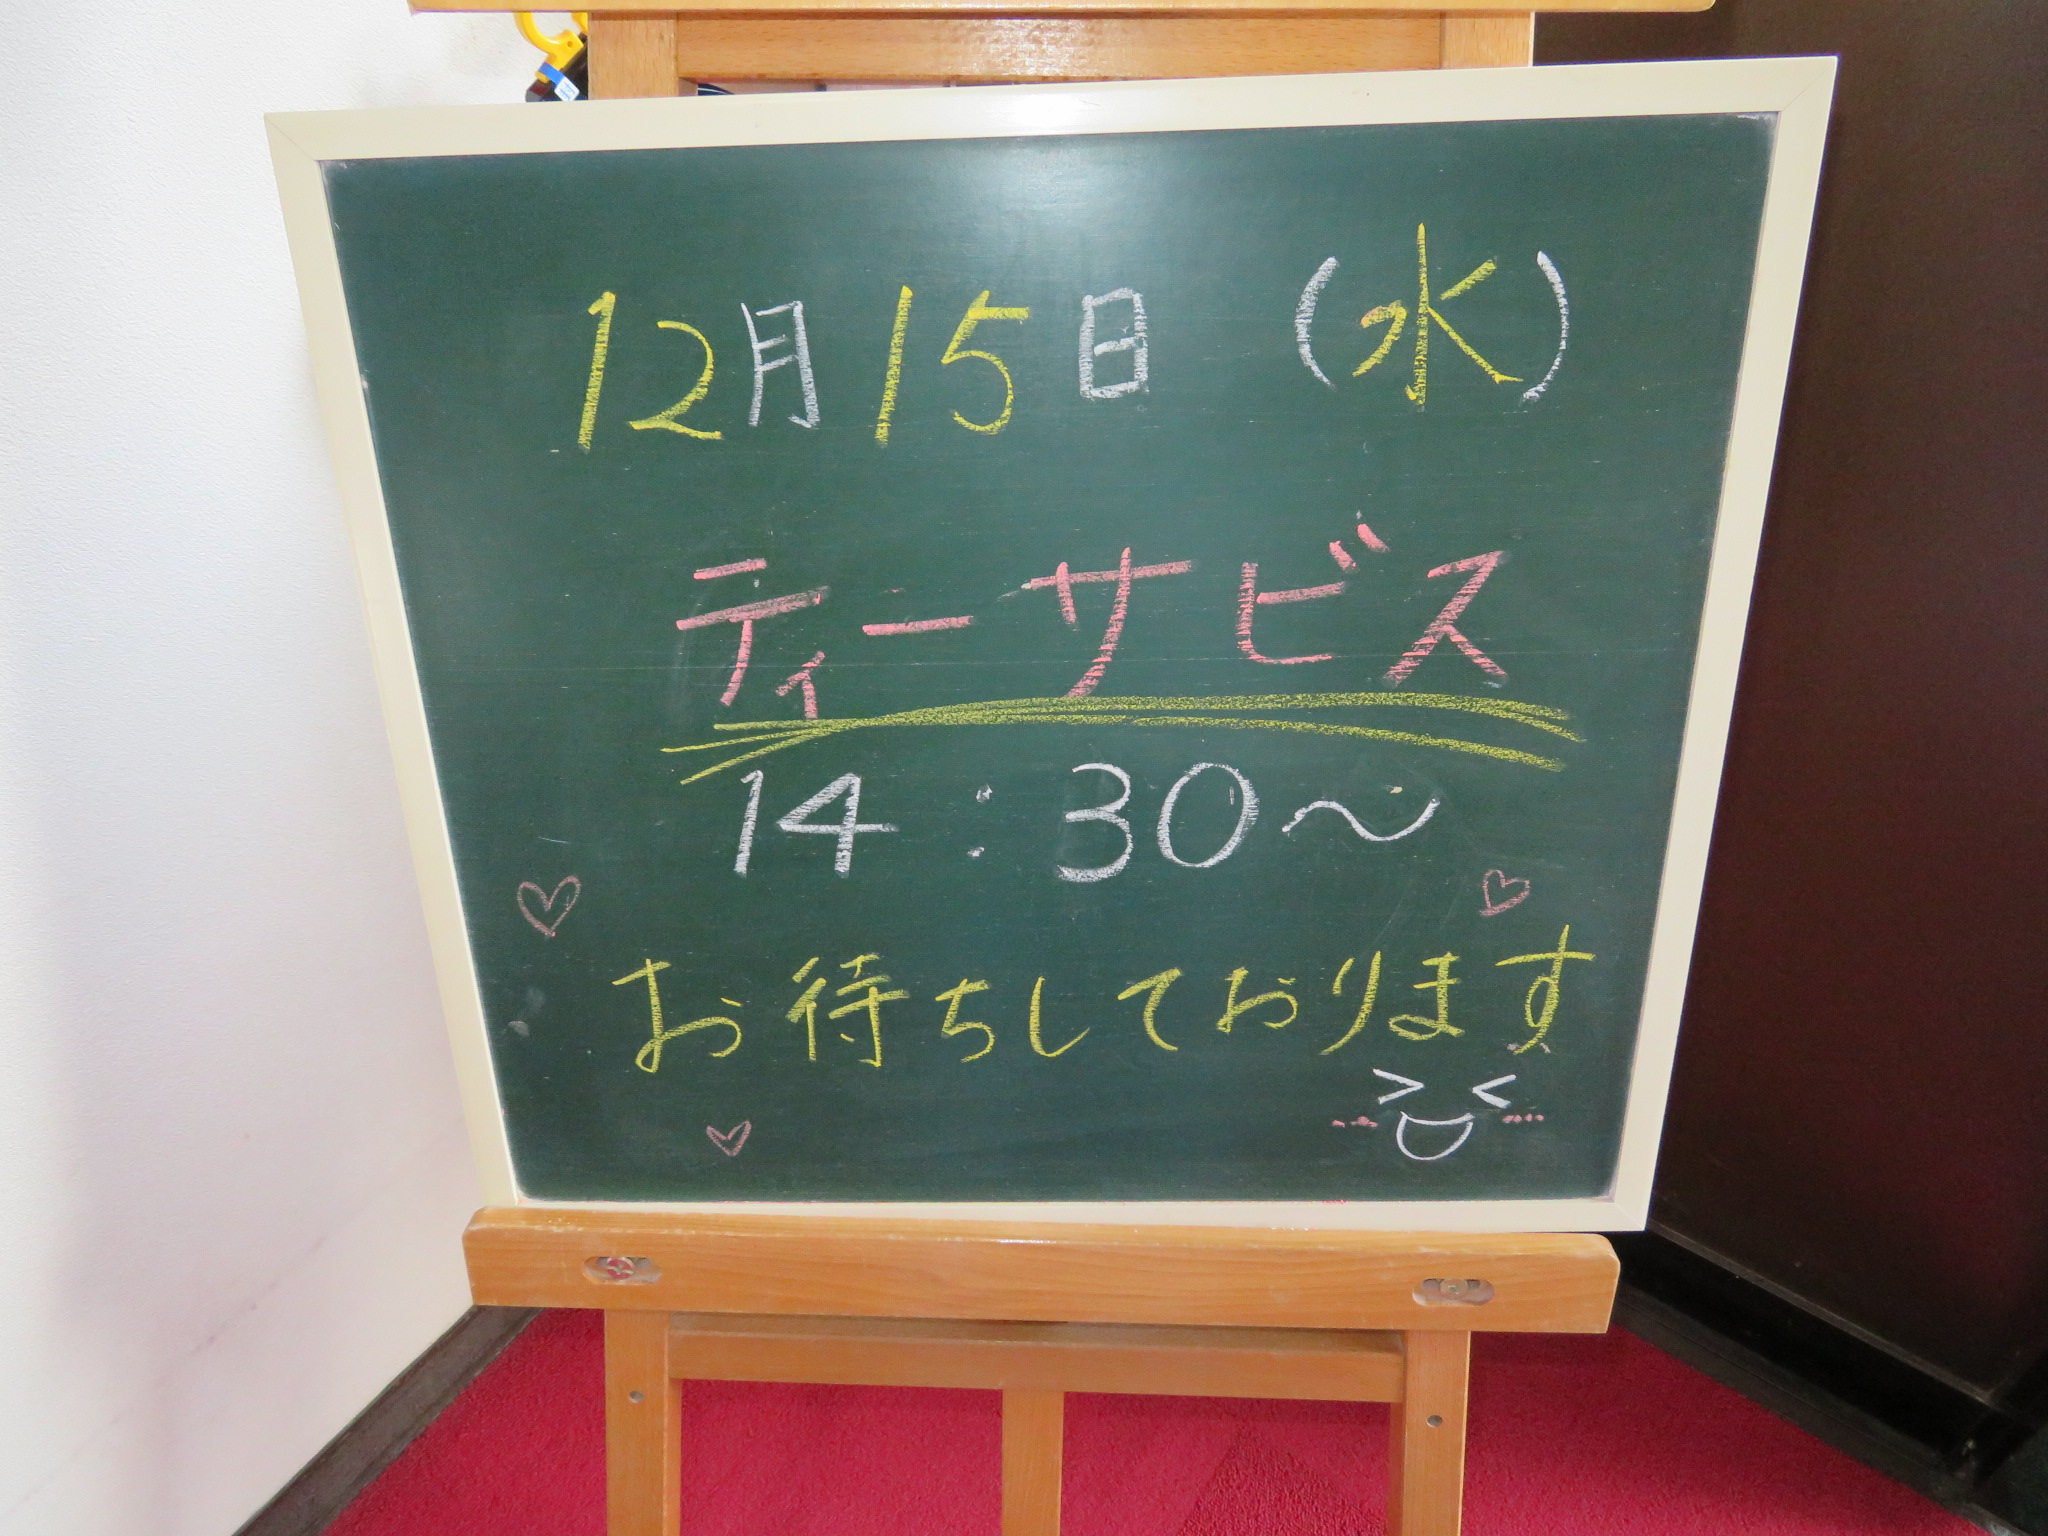 12月15日 (水)
ティーサビス
14:30～
お待ちしております